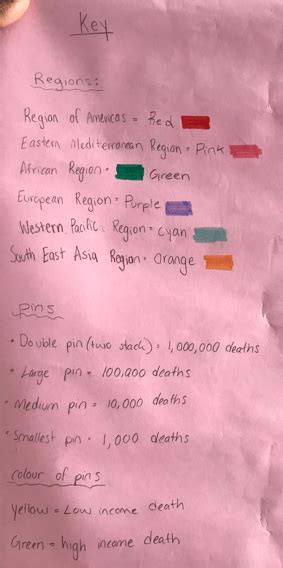 Key
Regions:
Region of Americas = Red
Eastern Mediterranean Region = Pink
African Region = Green
European Region = Purple
Western Pacific Region = Cyan
South East Asia Region = Orange
Pins
• Double pin (two stack) = 1,000,000 deaths
• Large pin = 100,000 deaths
• Medium pin = 10,000 deaths
• Smallest pin = 1,000 deaths
Colour of pins
Yellow = Low income death
Green = high income death